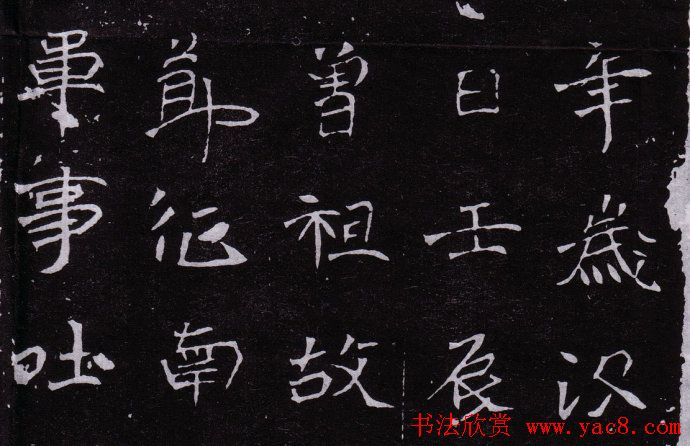 年歲次
日壬辰
曾祖故
節征南
軍事吐
书法欣赏 www.yac8.com